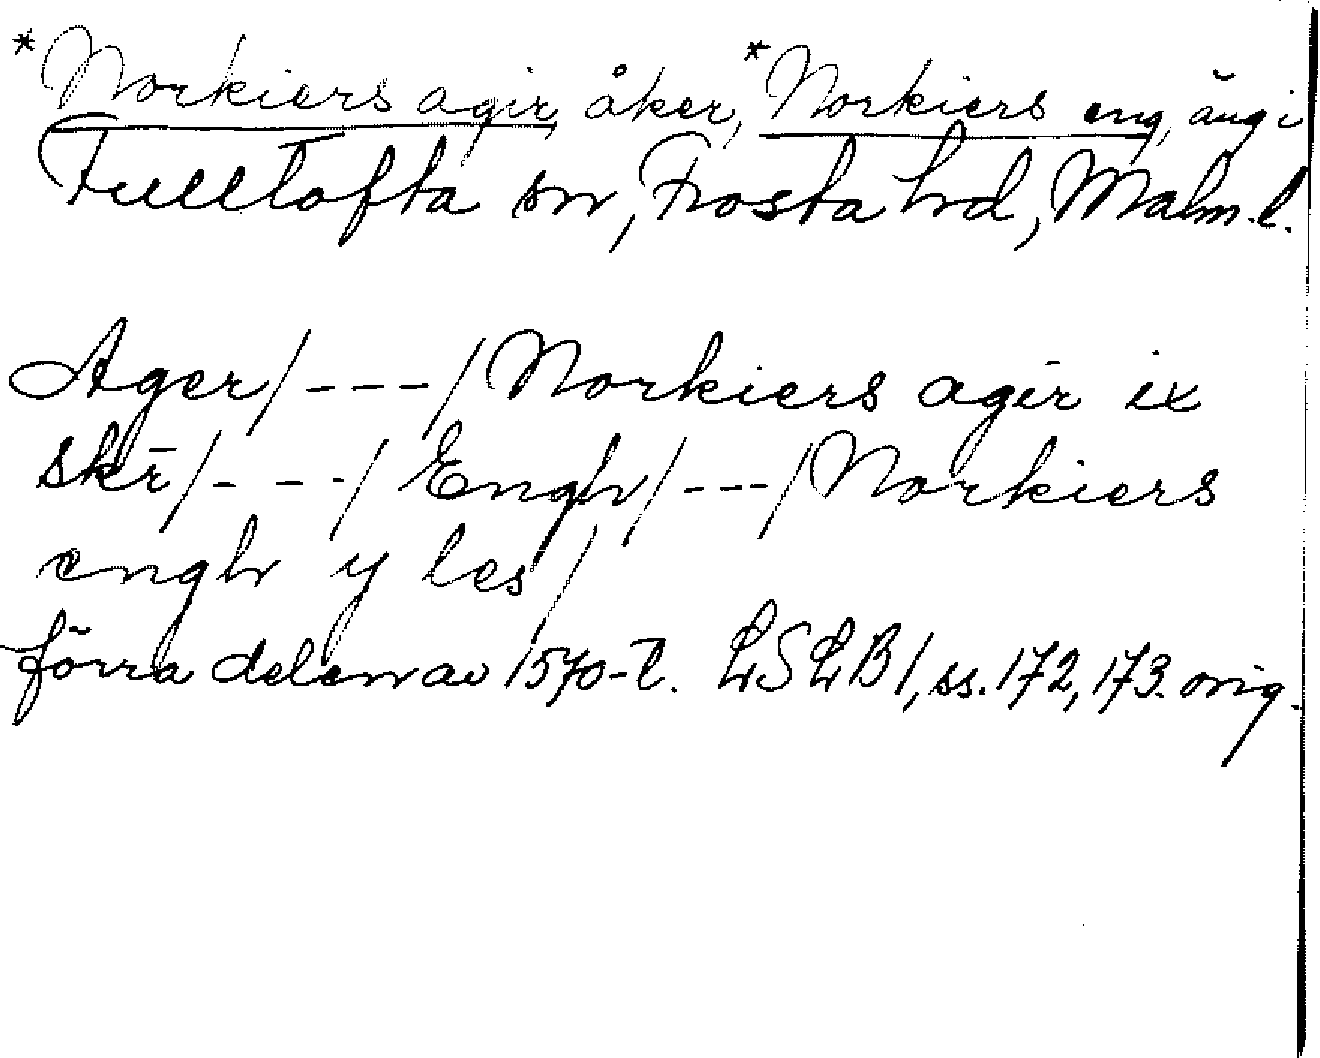 *Norkiers agir, åker, *Norkiers eng, äng i
Fulltofta sn, Frosta hd, Malm. l.
Ager/---/Norkiers agir ix
skē/---/Engh/---/Norkiers
engh y les/
förra delen av 1570-t. LSLB1, ss. 172, 173. orig.